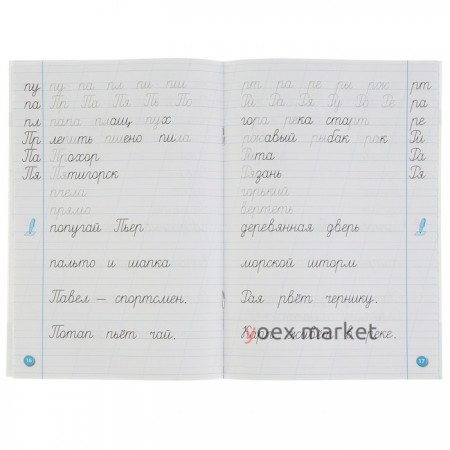 пу пу па пл пи пш
па Пр Па Пя Пь По
пл папа плащ пух
Пр лепить пшено пила
Па Прохор
Пя Пятигорск
пчела
прямо
попугай Пьер
пальто и шапка
Павел — спортсмен.
Потап пьёт чай.
16
рт ра ре ры рж рт
ра
гора река старт ре
ржавый рыбак рак Рі
Рита Ра
Рязань Ря
горький
вертеть
деревянная дверь
морской шторм
Рая рвёт чернику.
в реке.
yoex.market
17